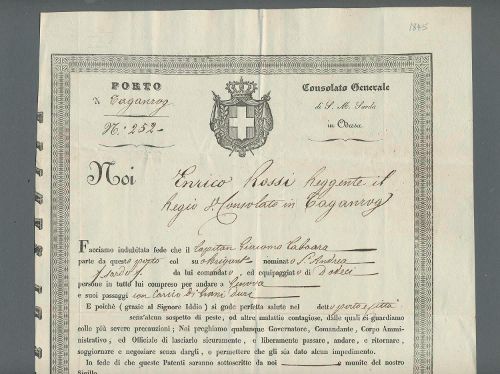 1845
PORTO
Consolato Generale
N Taganrog
di S. M. Sarda
N.: 252
in Odessa
Noi
Enrico Rossi Reggente il
Regio Vº Consolato in Taganrog
Facciamo indubitata fede che il Capitan Giacomo
parte da questo porto col suo nominato S. Andrea
Sardo da lui comandato, ed equipaggiato di Dodeci
persone in tutto lui compreso per andare a Genova
e suoi passaggi con carico di Grani duri
E poichè (grazie al Signore Iddio) si gode perfetta salute nel detto porto e città
senz'alcun sospetto di peste, od altro malattie contagiose, dalle quali ci guardiamo
colle più severe precauzioni; Noi preghiamo qualunque Governatore, Comandante, Corpo Ammi-
nistrativo, ed Officiale di lasciarlo sicuramente, e liberamente passare, andare, e ritornare,
soggiornare e negoziare senza dargli, o permettere che gli sia dato alcun impedimento.
In fede di che queste Patenti saranno sottoscritte da noi e munite del nostro
Sigillo